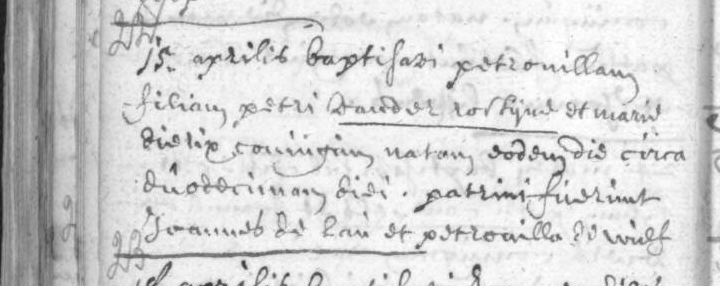 15 aprilis baptisavi petronillam
filiam petri vander rostijne et marie
dierix coniugum natam eodem die circa
duodecimam diei. patrini fuerunt
Joannes de Lau et petronilla de wulf
aprilis